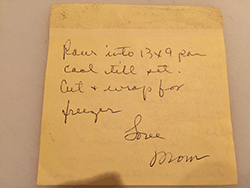 Pour into 13x9 pan
cool till set.
Cut + wrap for
freezer
Love
Mom